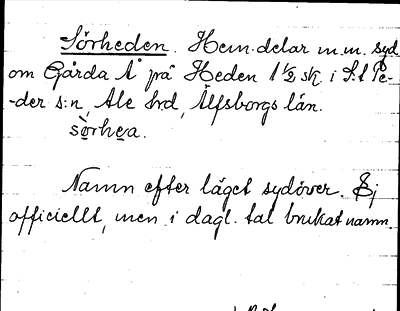 Sörheden. Hem.delar m.m. syd
om Gårda Å på Heden 1 1/2 sk i S:t Pe-
-der s:n, Ale hrd, Älfsborgs län.
sörhea.
Namn efter läget sydöver. Ej
officiellt, men i dagl. tal brukat namn.